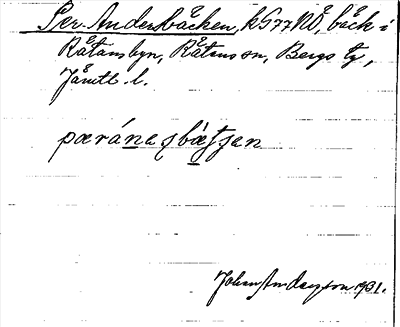 Per-Andersbäcken, k577NÖ, bäck i
Råtansbyn, Råtans sn, Bergs tg,
Jämtl. l.
pærána ʃbætʃen
Johan Anderzson 1931.